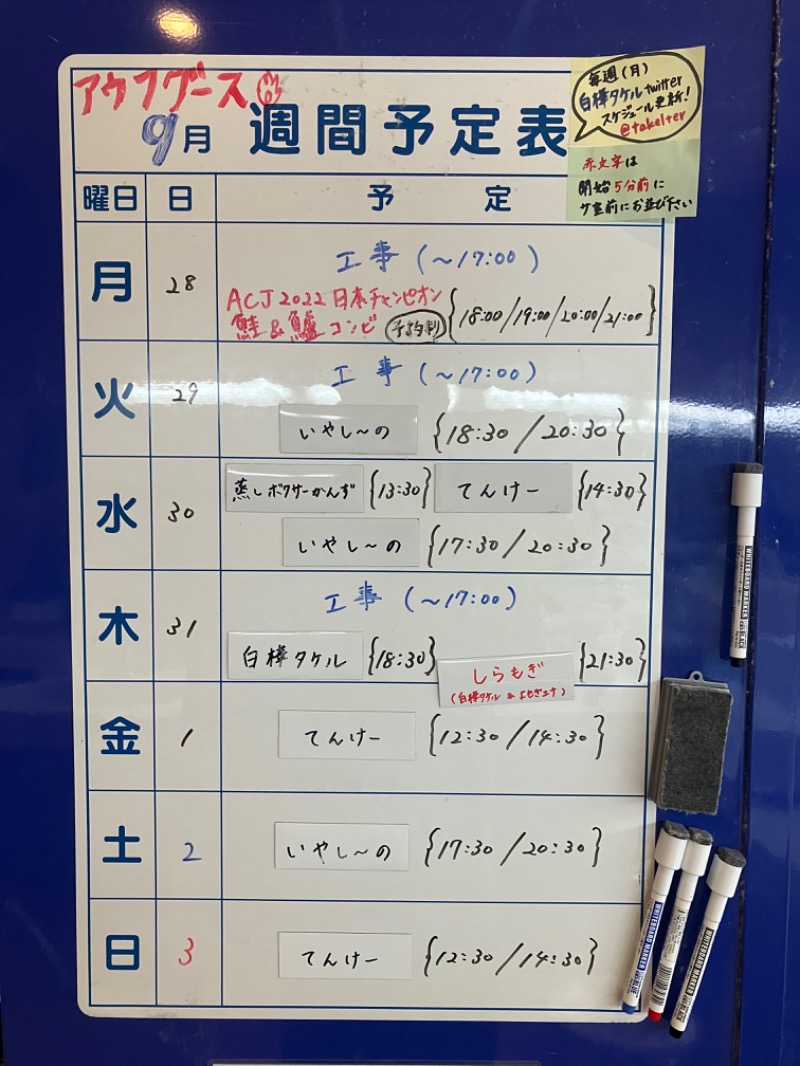 アウフグース
9月 週間予定表
毎週(月)
白樺タケルtwitter
スケジュール更新!
@takelter
赤文字は
開始5分前に
サ室前にお並び下さい
曜日 日 予定
月 28 工事(~17:00)
ACJ2022日本チャンピオン
鮭&鱸コンビ 予約制 {18:00/19:00/20:00/21:00}
火 29 工事(~17:00)
いやし~の {18:30/20:30}
水 30 蒸しボクサーかんず {13:30} てんけー {14:30}
いやし~の {17:30/20:30}
木 31 工事(~17:00)
白樺タケル {18:30} しらもぎ {21:30}
(白樺タケル & よもぎエナ)
金 1 てんけー {12:30/14:30}
土 2 いやし~の {17:30/20:30}
日 3 てんけー {12:30/14:30}
WHITEBOARD MARKER BLACK
WHITEBOARD MARKER BLUE
WHITEBOARD MARKER